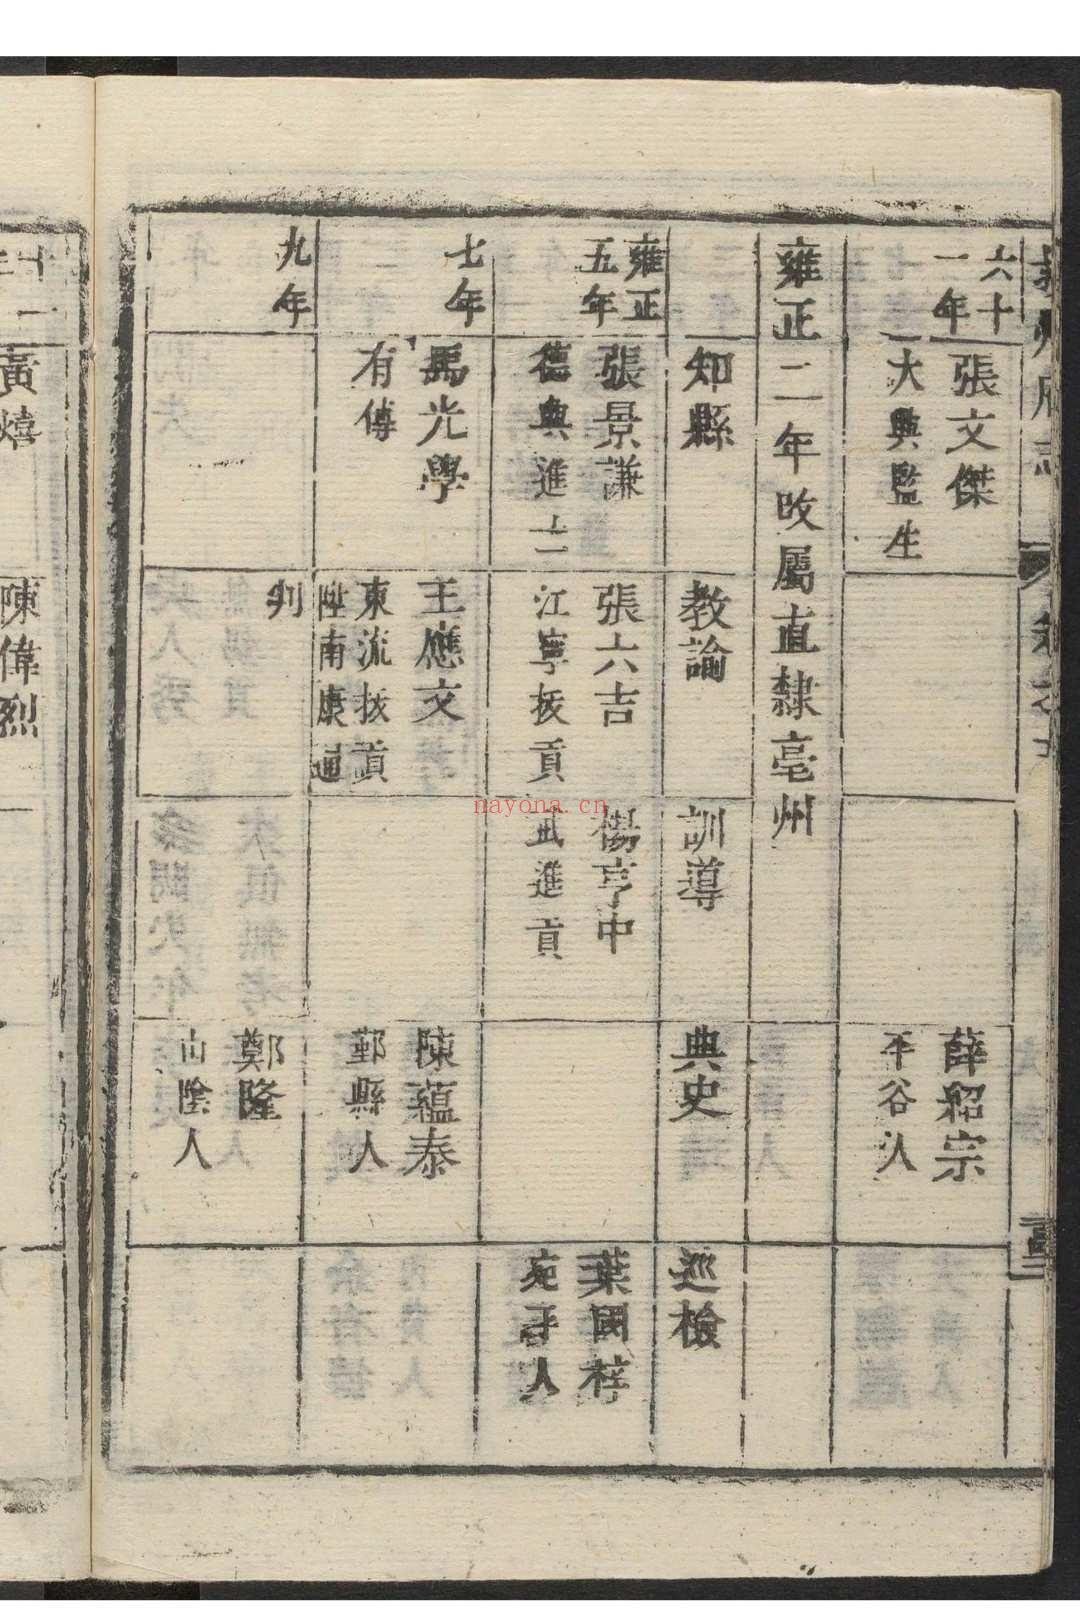 六十
一年
張文傑
大興監生
薛紹宗
平谷人
雍正二年改屬直隸亳州
知縣
教諭
訓導
典史
巡檢
雍正
五年
張景謙
德興進士
張六吉
江寧拔貢
楊亨中
武進貢
葉國梓
宛平人
七年
禹光學
有傳
王應文
東流拔貢
陞南康通
陳蘊泰
鄞縣人
九年
判
鄭隆
山陰人
十
一
黃
陳偉烈
nayona.cn